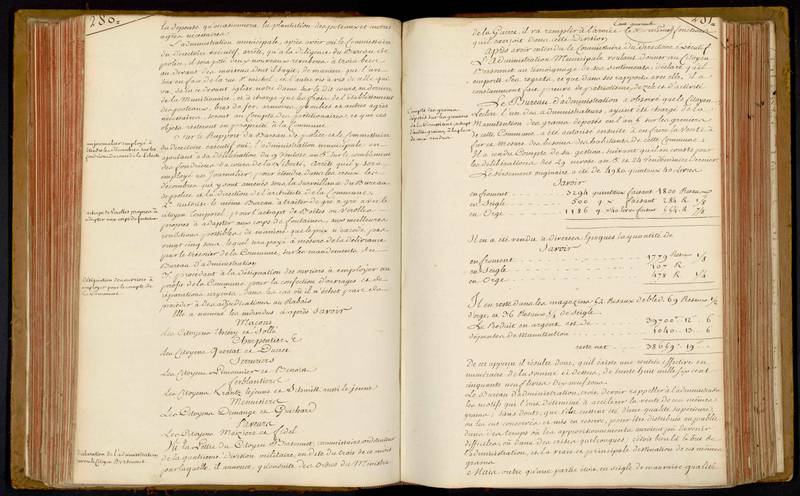 280.
la dépense qu'occasionnera la plantation des poteaux et autres
agrès nécessaires.
L'administration municipale, après avoir ouï le Commissaire
du directoire exécutif, arrête, qu'à la diligence du Bureau de
police, il sera placé deux nouveaux
au devant des maisons dont il s'agit, de manière que l'un
soit en face de la rue St michel, et l'autre vis à vis de celle qui
va de la ci-devant église notre dame sur le dit cours, en derrière
de la Munitionnaire, et à charge que les frais de l'établissement
des poteaux, bras de fer, poulies et autres agrès
nécessaires, seront au compte des pétitionnaires, et que ces
objets resteront en propriété à la Commune.
Sur le Rapport du Bureau de police et le Commissaire
du directoire exécutif ouï, l'administration municipale, en
ajoutant à sa délibération du 19 Ventose an 5e sur le comblement
des fondrières du cours de la Liberté, Arrête qu'il y sera
employé un Journalier, pour étendre dans les creux les
décombres qui y sont amenés sous la surveillance du Bureau
de police et la direction de l'architecte de la Commune.
2° autorise le même Bureau à traiter de gré à gré avec le
citoyen Composel, pour l'achapt de Boëtes ou Virolles
propres à adapter aux corps de fontaines, aux meilleures
conditions possibles, de manière que le prix n'excède pas
vingt cinq sous, lequel sera payé à mesure de la délivrance
par le trésorier de la Commune, sur les mandements du
Bureau d'administration.
3° procédant à la désignation des ouvriers à employer au
profit de la Commune, pour la confection d'ouvrages et de
réparations urgents, dans les cas où il n'échet pas de
procéder à des adjudications au Rabais
Elle a nommé les individus ci après Savoir
Maçons
des Citoyens et Sollé
Charpentiers
des Citoyens Quertat et Durée
Serruriers
Les Citoyens et Benoit
Ferblantiers
Les Citoyens Krantz le jeune et Schmitt aussi le jeune
Menuisiers
Les Citoyens Demange et Guichard
Paveurs
Les Citoyens Marziore et Fidel
Vu la Lettre du Citoyen Brasonnet, commissaire ordonnateur
de la quatrieme division militaire, en date du trois de ce mois
par laquelle, il annonce, qu'ensuite des ordres du Ministre
un journalier employé à
étendre les décombres sur les
fondrières du cours de la Liberté
achapt de Virolles propres à
adapter aux corps de fontaines
désignation des ouvriers à
employer pour le compte de
la Commune
déclaration de l'administration
sur le Citoyen Brasonnet
281.
de la Guerre, il va remplir à l'armée les mêmes fonctions
qu'il exerçait dans cette division,
Après avoir entendu le Commissaire du directoire exécutif
L'administration Municipale voulant donner au Citoyen
Brasonnet un témoignage de ses sentiments, déclare qu'il
emporte ses regrets, et que dans ses rapports avec elle, il a
constamment fait preuve de patriotisme, de zèle et d'activité.
Le Bureau d'administration a observé que le Citoyen
l'un des administrateurs, ayant été chargé de la
Manutention des grains déposés en l'an 5 sur les greniers
de cette Commune, a été autorisé ensuite à en faire la Vente à
fur et mesure des besoins des habitants de cette Commune.
Il a rendu Compte de sa gestion, suivant qu'il en conste par
les délibérations des 29 nivose an 5 et 24 Vendémiaire dernier.
Le Versement originaire a été de 4980 quintaux 40 livres
Savoir
en froment 3294 quintaux faisant 1800 Resaux
en Seigle 500 q faisant 284 R 1/8
en Orge 1186 q 40 livres faisant 554 R 7/8
Il en a été vendu à diverses Epoques la quantité de
Savoir
en froment 1779 Resaux 1/2
en Seigle 107 R
en Orge 478 R 1/4
Il en reste dans les magazins 52 Resaux de bled. 69 Resaux 1/2
d'orge, et 36 Resaux 1/4 de Seigle.
Le Produit en argent est de 39700 " 12 " 6
dépenses de Manutention 1040 . 13 . 6
reste net 38659 . 19 "
De cet apperçu il résulte donc, qu'il existe une rentrée effective en
numéraire de la somme ci dessus, de trente huit mille six cent
cinquante neuf livres dix neuf sous.
Le Bureau d'administration, croit devoir rappeller à l'administration
les motifs qui l'ont déterminé à accélérer la vente de ces mêmes
grains; sans doute, que s'ils eussent été d'une qualité supérieure,
on les eut conservés et mis en réserve, pour être distribués au public
dans des temps où les approvisionnements auraient pu devenir
difficiles, ou dans des crises quelconques; c'étoit bien là le but de
l'administration, et la vraie et principale destination de ces mêmes
grains.
Mais outre qu'une partie étoit en seigle de mauvaise qualité
Compte des grains
déposés sur les greniers
de la Commune